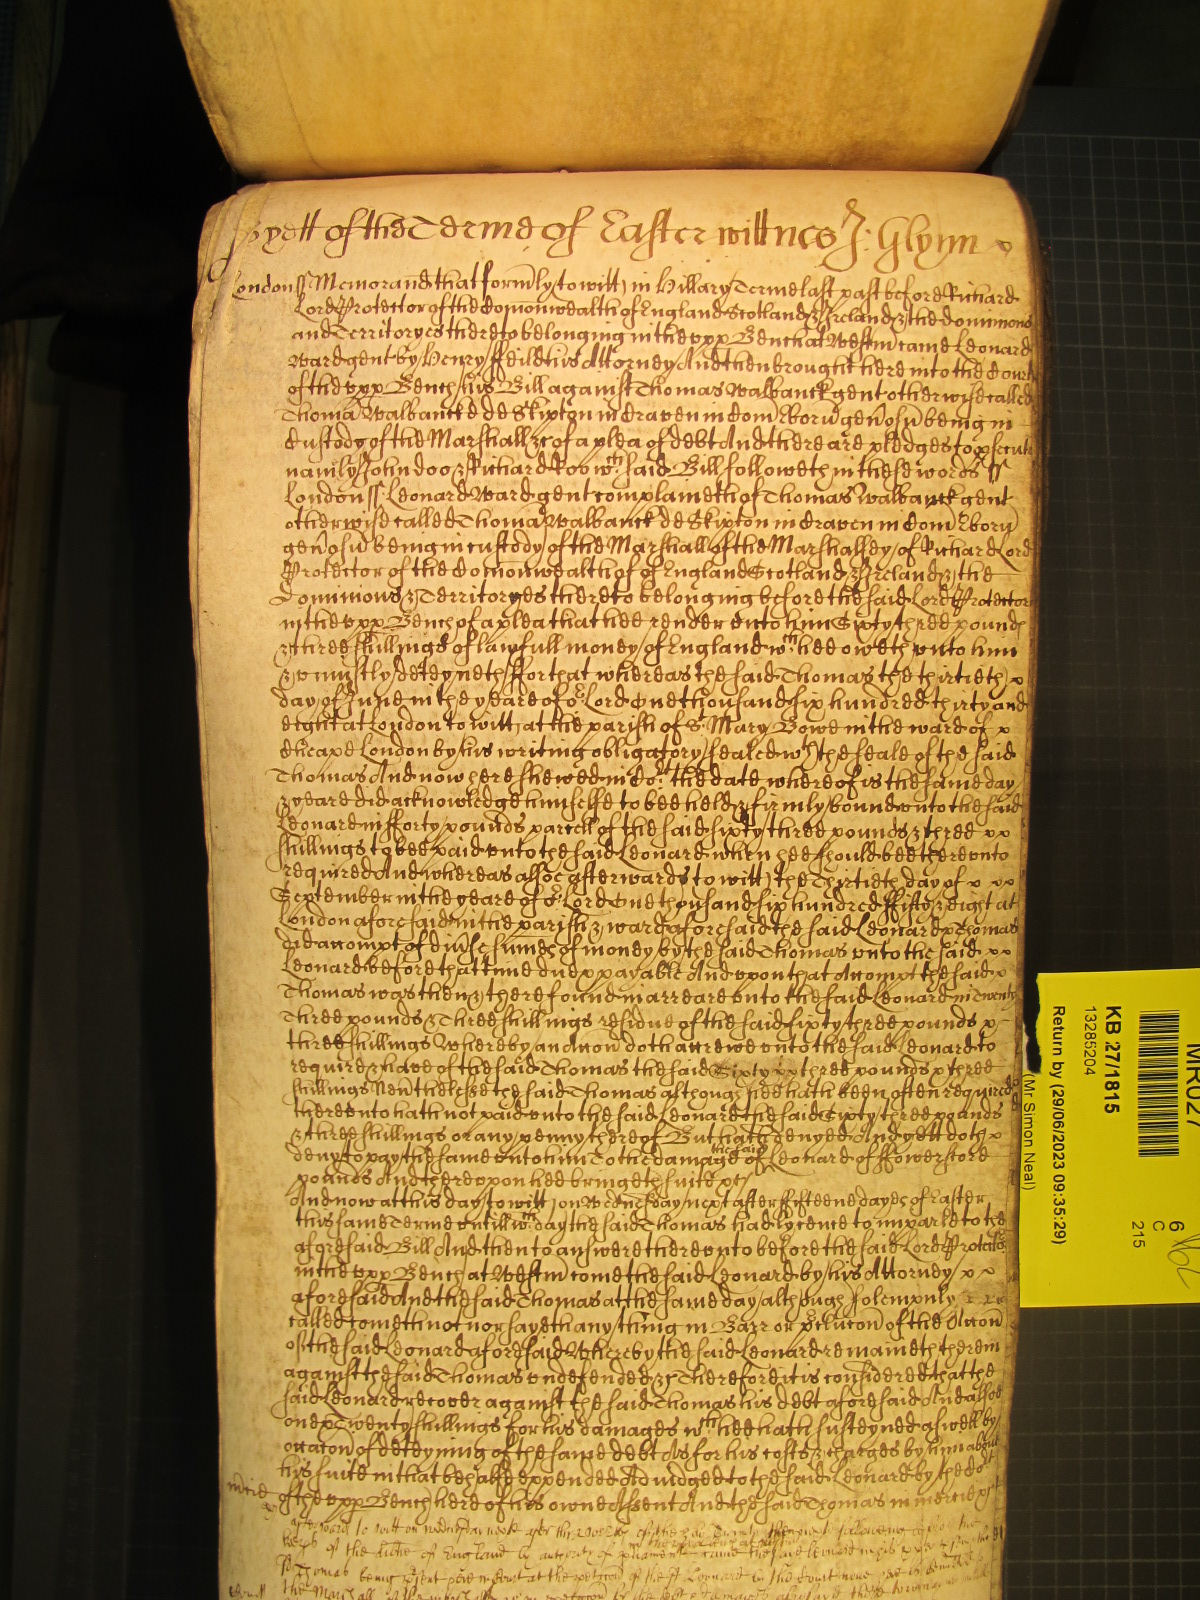 yett of the Terme of Easter wittnes J: Glynn
London ss Memorand that formly (to witt) in Hillary Terme last past before Richard
Lord Protector of the Comonwealth of England Scotland & Ireland & the dominions
and Territoryes thereto belonging in the upp Bench at Westm came Leonard
Ward gent by Henry ffeild his Attorney And then brought here into the Court
of the upp Bench his Bill against Thomas Walbanck gent otherwise called
Thoma Walbancke de Skipton in Craven in Com Ebor gen osu being in
Custody of the Marshall &c of a plea of debt And there are pledges to psecute
namly John doo & Richard Roo wch said Bill followeth in these words ss
London ss Leonard Ward gent complaineth of Thomas Walbanck gent
otherwise called Thoma Walbanck de Skipton in Craven in Com Ebor
gen osu being in custody of the Marshall of the Marshalsey of Richard Lord
Protector of the Comonwealth of of England Scotland & Ireland & the
Dominions & Territoryes thereto belonging before the said Lord Protector
in the upp Bench of a plea that hee render unto him Sixty three pounds
& three shillings of lawfull money of England wch hee oweth unto him
& uniustly deteyneth ffor that whereas the said Thomas the thirtieth
day of June in the yeare of or Lord One thousand six hundred thirty and
eight at London to witt at the parish of St Mary Bowe in the ward of
Cheape London by his writing obligatory sealed wth the seale of the said
Thomas And now here shewed in Cort the date whereof is the same day
& yeare did acknowledge himselfe to bee held & firmly bound unto the said
Leonard in fforty pounds parcell of the said sixty three pounds & three
shillings to bee paid unto the said Leonard when hee should bee thereunto
required And whereas alsoe afterwards to witt the Thirtieth day of
September in the yeare of or Lord One thousand six hundred ffifty & eight at
London aforesaid in the parish & ward aforesaid the said Leonard & Thomas
did accompt of divse sumes of money by the said Thomas unto the said
Leonard before that time due & payable And upon that Accompt the said
Thomas was then & there found in arreare unto the said Leonard in Twenty
Three pounds & Three shillings residue of the said sixty three pounds
three shillings Whereby an accon doth accrewe unto the said Leonard to
require & have of the said Thomas the said Sixty three pounds & three
shillings Nevtheless the said Thomas although hee hath been often required
thereunto hath not paid unto the said Leonard the said Sixty three pounds
& three shillings or any penny thereof But hath denyed And yett doth
deny to pay the same unto him To the damage of the said Leonard of ffowerscore
pounds And thereupon hee bringeth suite &c
And now at this day (to witt) on Wednesday next after ffifteene dayes of Easter
this same Terme untill wch day the said Thomas had lycence to imparle to the
aforesaid Bill And then to answere thereunto before the said Lord Protector
in the upp Bench at Westm come the said Leonard by his Attorney
aforesaid And the said Thomas at the same day although solempnly
called cometh not nor sayeth any thing in Barr or pclucon of the Accon
of the said Leonard aforesaid Whereby the said Leonard remaineth therein
against the said Thomas undefended &c Therefore it is considered that the
said Leonard recover against the said Thomas his debt aforesaid And alsoe
one & Twenty shillings for his damages wch hee hath susteyned aswell by
occacon of deteyning of the same debt As for his costs & charges by him about
his suite in that behalfe expended Adiudged to the said Leonard by the Cort
mcie of the upp Bench here of his owne Assent And the said Thomas in mercie &c
KB 27/1815
13285204
Return by (29/06/2023 09:35:29)
(Mr Simon Neal)
MR027
6
C
215